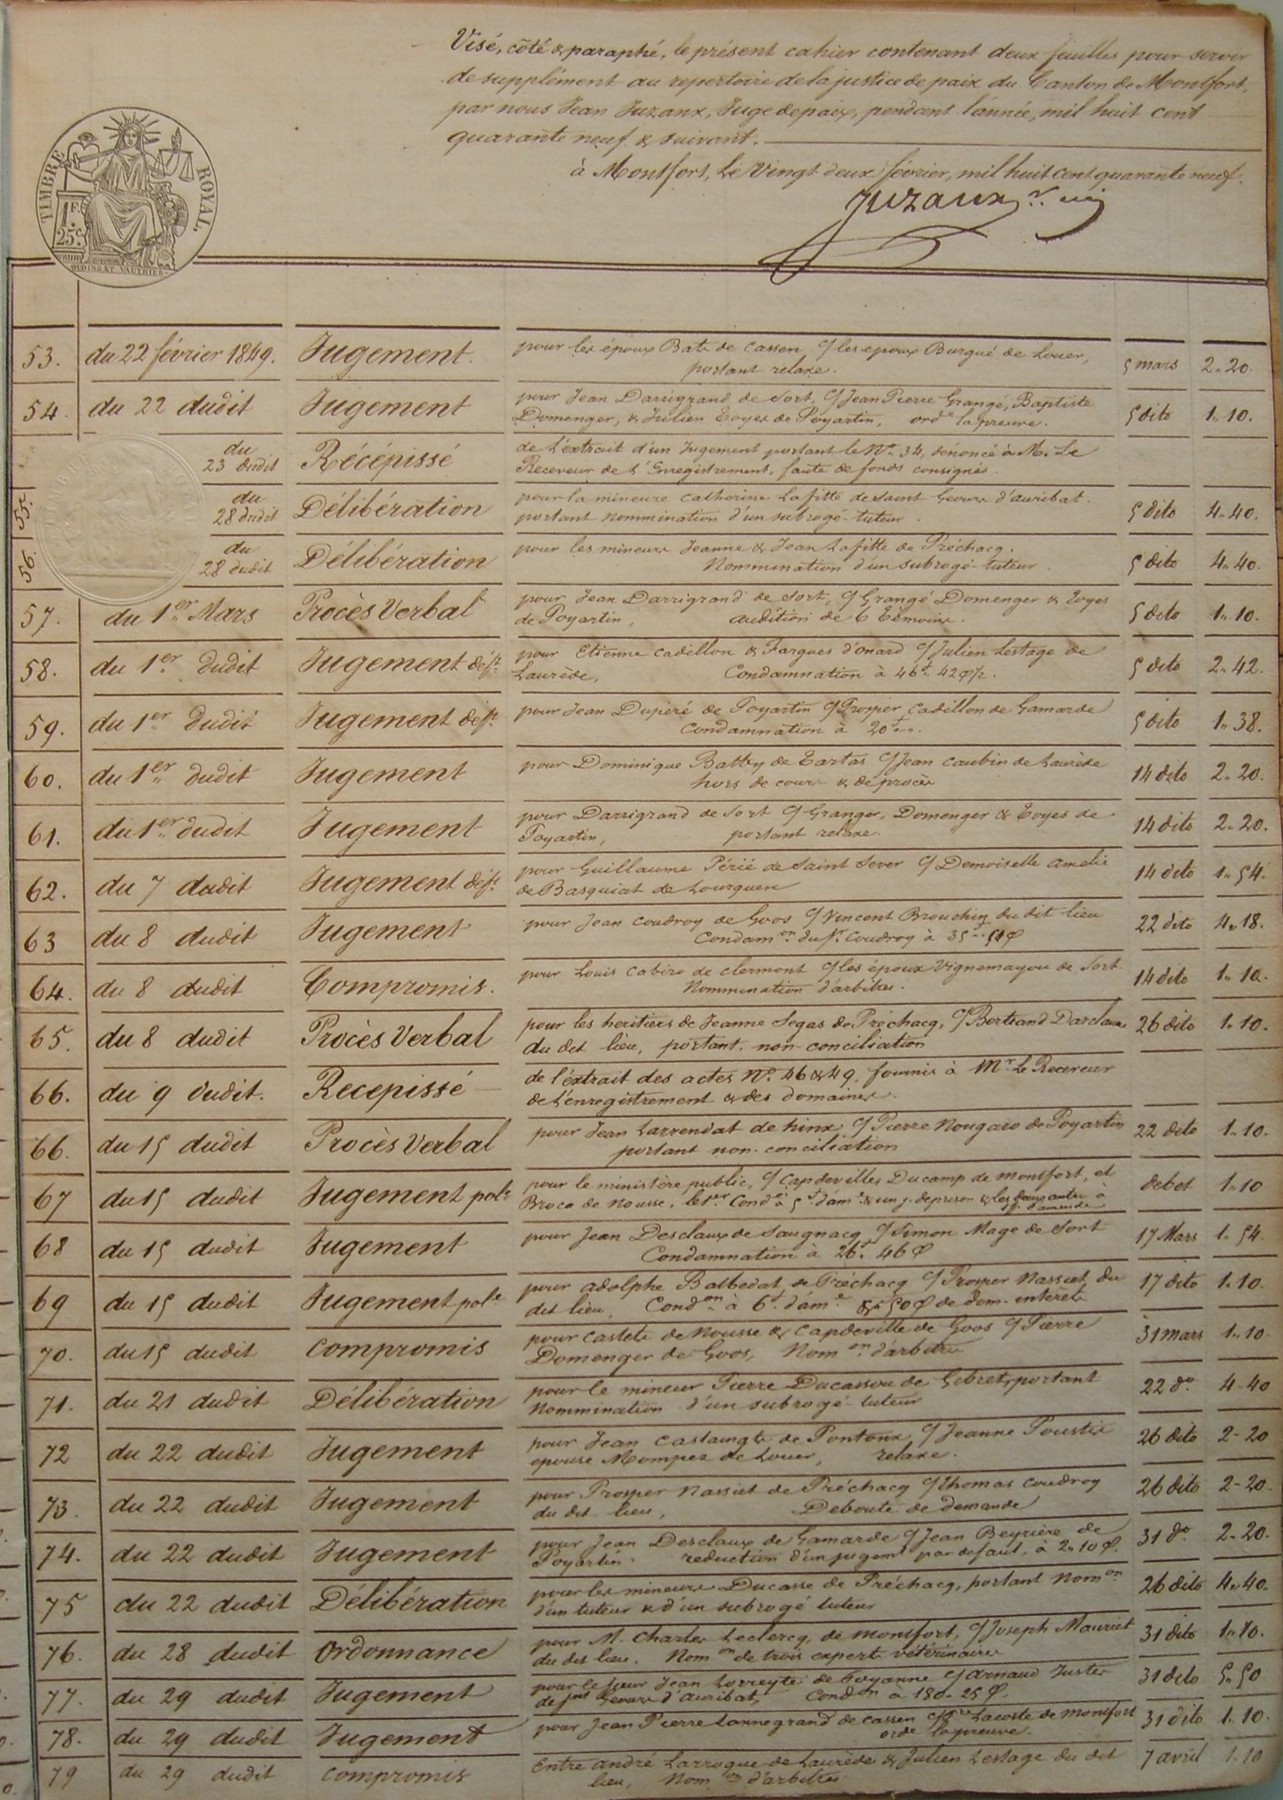 Visé, côté & paraphé, le présent cahier contenant deux feuilles pour servir
de supplément au repertoire de la justice de paix du Canton de Montfort,
par nous Jean Juzanx, Juge de paix, pendant l'année, mil huit cent
quarante neuf & suivant.
à Montfort, Le Vingt deux février, mil huit cent quarante neuf.
Juzanx
TIMBRE ROYAL.
1 F.
25 c.
53. du 22 février 1849. Jugement. pour les époux Bats de Cassen C/ les epoux Burgué de Louer, 5 mars 2.20.
portant relaxe.
54. du 22 dudit Jugement pour Jean Darrigrand de Sort, C/ Jean Pierre Grangé, Baptiste 5 dito 1.10.
Domenger, & Julien Loyes de Poyartin, ord.e la preuve.
du 23 dudit Récépissé de l'extrait d'un Jugement portant le No. 34, dénoncé à M. Le
Receveur de l'Enregistrement, faute de fonds consignés.
55. du 28 dudit Délibération pour la mineure Catherine Lafitte de Saint Geours d'auribat. 5 dito 4.40.
portant nommination d'un subrogé-tuteur.
56. du 28 dudit Délibération pour les mineurs Jeanne & Jean Lafitte de Préchacq. 5 dito 4.40.
Nommination d'un subrogé-tuteur.
57. du 1er Mars Procès Verbal pour Jean Darrigrand de Sort, C/ Grangé Domenger & Loyes 5 dito 1.10.
de Poyartin, audition de 6 Témoins.
58. du 1er dudit Jugement déft. pour Etienne Cadillon & Fargues d'onard C/ Julien Lestage de 5 dito 2.42.
Laurède, Condamnation à 46f. 42 c 1/2.
59. du 1er dudit Jugement déft. pour Jean Dupéré de Poyartin C/ Prosper Cadillon de Gamarde 5 dito 1.38.
Condamnation à 20f.
60. du 1er dudit Jugement pour Dominique Battby de Tartas C/ Jean Caubin de Laurède 14 dito 2.20.
hors de cour & de procès
61. du 1er dudit Jugement pour Darrigrand de Sort C/ Granger, Domenger & Loyes de 14 dito 2.20.
Poyartin, portant relaxe.
62. du 7 dudit Jugement déft. pour Guillaume Périé de Saint Sever C/ Demoiselle Amelie 14 dito 1.54.
de Basquiat de Lourquen
63 du 8 dudit Jugement pour Jean Coudroy de Goos C/ Vincent Brouching du dit lieu 22 dito 4.18.
Condamon. du Sr. Coudroy à 35
64. du 8 dudit Compromis. pour Louis Cabiro de Clermont C/ les époux Vignemayou de Sort 14 dito 1.10.
Nommination d'arbitres.
65. du 8 dudit Procès Verbal pour les heritiers de Jeanne Segas de Préchacq, C/ Bertrand Darclanne 26 dito 1.10.
du dit lieu, portant non-conciliation
66. du 9 dudit. Recepissé de l'éxtrait des actes No. 46 & 49, fournis à Mr. Le Receveur
de l'enregistrement & des domaines.
66. du 15 dudit Procès Verbal pour Jean Larrendat de hinx C/ Pierre Nougaro de Poyartin 22 dito 1.10.
portant non-conciliation
67 du 15 dudit Jugement pole pour le ministère public, C/ Capdeville, Ducamp de Montfort, et debet 1.10
Broca de Nousse, le 1er. Condé à 5f d'ame & un j. de prison & les deux autres à
68 du 15 dudit Jugement pour Jean Desclaux de Saugnacq C/ Simon Mage de Sort 17 Mars 1.54.
Condamnation à 26f. 46 c
69 du 15 dudit Jugement pole pour adolphe Balbedat de Préchacq C/ Prosper Nassiet du 17 dito 1.10.
dit lieu, Condon à 6f. d'ame & 50 c de dom. interets
70. du 15 dudit Compromis pour Castets de Nousse & Capdeville de Goos C/ Pierre 31 mars 1.10.
Domenger de Goos, Nomon d'arbitres
71. du 21 dudit Délibération pour le mineur Pierre Ducassou de Gibret, portant 22 do. 4.40
Nommination d'un subrogé-tuteur
72 du 22 dudit Jugement pour Jean Castaingts de Pontonx C/ Jeanne Poustis 26 dito 2-20
epouse Mompez de Louer, relaxe.
73. du 22 dudit Jugement pour Prosper Nassiet de Préchacq C/ Thomas Coudroy 26 dito 2-20.
du dit lieu, Deboute de demande
74. du 22 dudit Jugement pour Jean Desclaux de Gamarde C/ Jean Beyrière de 31 do. 2.20.
Poyartin. reduction d'un jugemt par defaut à 2.10 c.
75 du 22 dudit Délibération pour les mineurs Ducasse de Préchacq, portant Nomon 26 dito 4.40.
d'un tuteur & d'un subrogé tuteur
76. du 28 dudit Ordonnance pour M. Charles Leclercq, de Montfort, C/ Joseph Mauriet 31 dito 1.10.
du dit lieu. Nomon de trois experts vétérinaires
77. du 29 dudit Jugement pour le Sieur Jean Lorreyte de Poyanne C/ Arnaud Justes 31 dito 5.50
de St Geours d'Auribat, Condon à 150.25 c.
78. du 29 dudit Jugement pour Jean Pierre Lannegrand de Cassen C/ Lacoste de Montfort 31 dito 1.10.
orde la preuve.
79 du 29 dudit Compromis Entre andré Larroque de Laurède & Julien Lestage du dit 7 avril 1.10
lieu, Nomon d'arbitres